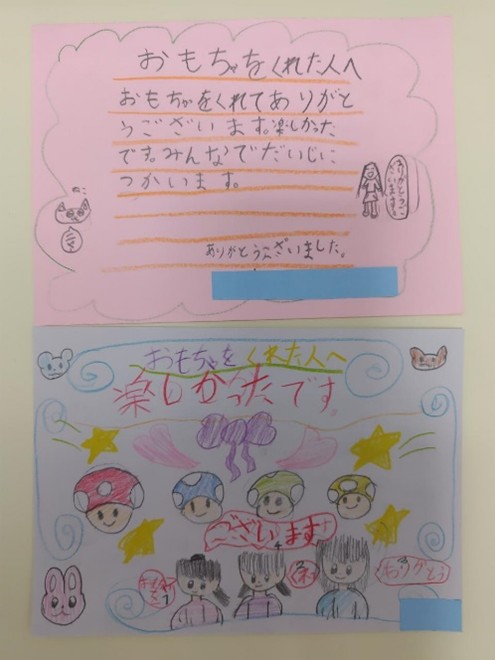 おもちゃをくれた人へ
おもちゃをくれてありがと
うございます。楽しかった
です。みんなでだいじに
つかいます。
ありがとうございます。
ありがとうございました。
おもちゃをくれた人へ
楽しかったです。
ございます
ありがとう